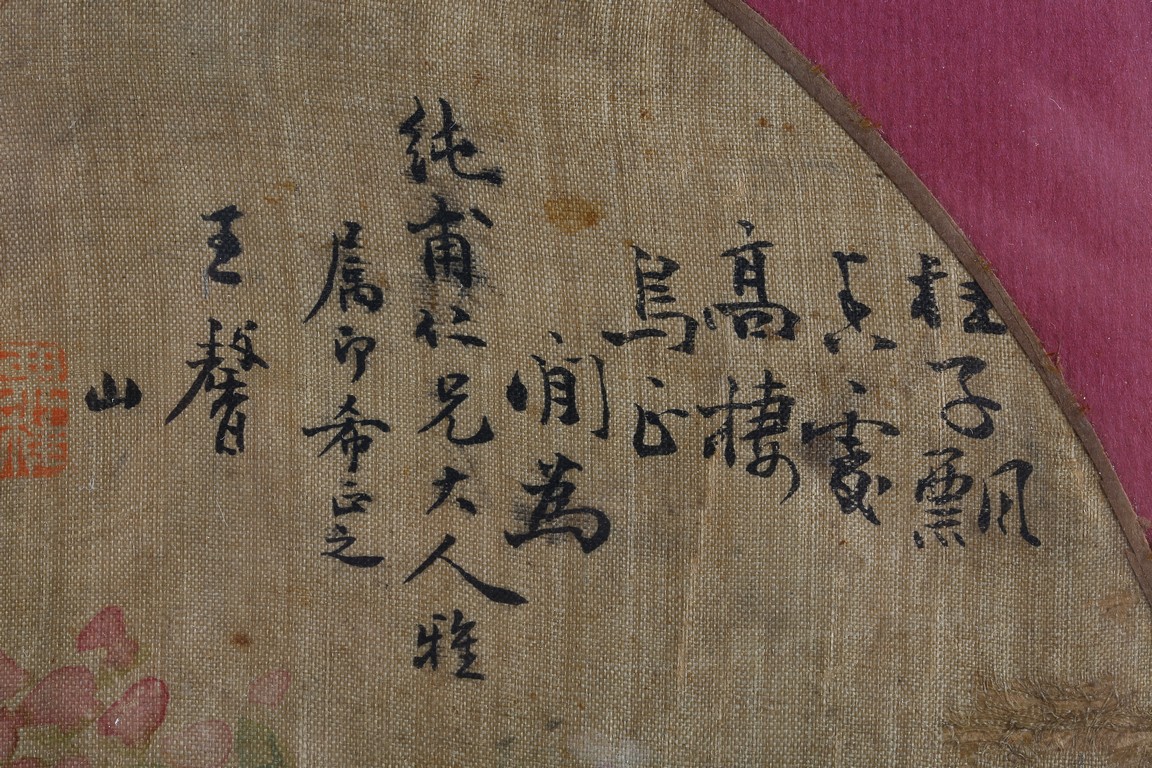 桂子飄
香處
高棲
烏正
閒為
純甫仁兄大人雅
属印希正之
王馨
山